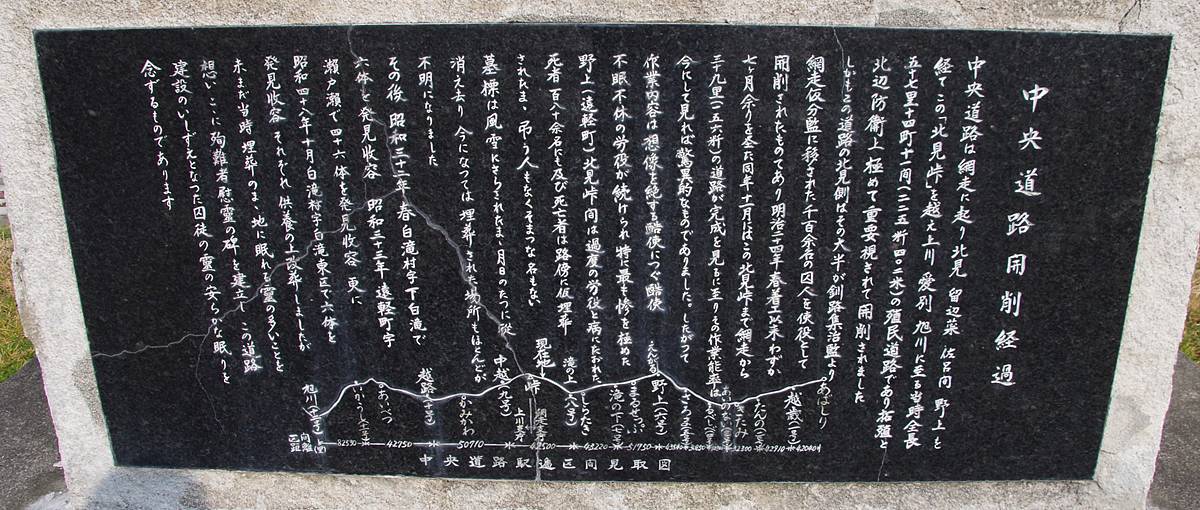 中央道路開削経過
中央道路は網走に起り北見 留辺蘂 佐呂間 野上を
経てこの「北見峠」を越え上川 愛別 旭川に至る当時全長
五十七里三十四町十一間(二二五粁四〇二米)の殖民道路であり拓殖と
北辺防衛上極めて重要視されて開削されました
しかもこの道路の北見側はその大半が釧路集治監より
網走仮分監に移された千百余名の囚人を使役として
開削されたものであり明治二十四年春着工以来わずか
七ヶ月余りを至た同年十一月にはこの北見峠まで網走から
三九里(一五六粁)の道路が完成を見るに至りその作業能率は
今にして見れば驚異的なものでありました。したがって
作業内容は想像を絶する酷使につぐ酷使
不眠不休の労役が続けられ特に最も惨を極めた
野上(遠軽町)北見峠間は過度の労役と病にたおれた
死者百八十余名にも及び死亡者は路傍に仮埋葬
されたまゝ弔う人もなくそまつな名もない
墓標は風雪にさらされたまゝ月日のたつに従い
消え去り 今になっては埋葬された場所もほとんどが
不明になりました
その後 昭和三十二年春白滝村字下白滝で
六体を発見收容 昭和三十三年 遠軽町字
瀬戸瀬で四十六体を発見收容 更に
昭和四十八年十月白滝村字白滝東区で六体を
発見收容 それぞれ供養の上改葬しましたが
未まだ当時埋葬のまゝ地に眠れる霊の多いことを
想いこゝに殉難者慰霊の碑を建立し この道路
建設のいしずえとなった囚徒の霊の安らかな眠りを
念ずるものであります
あばしり
越歳(一号)
野上(六号)
えんがる
まるせっぷ
滝の下(七号)
しらたき
滝の上(八号)
現在地
峠
中越(九号)
かみかわ
越路(十号)
あいべつ
旭川(十二号)
区間
距離
82530
42750
50710
43500
43220
51750
42910
42040
中央道路駅逓区間見取図